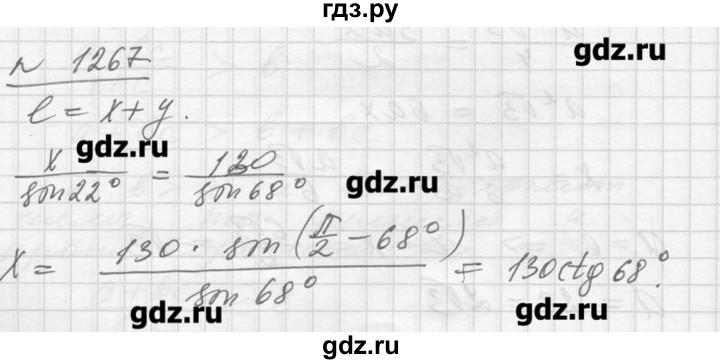 гдз.ру
n 1267
gdz.ru
l = x + y.
gdz.ru
x / sin 22° = 130 / sin 68°
gdz.ru
x = 130 · sin(π/2 − 68°) / sin 68° = 130 ctg 68°.
gdz.ru
gdz.ru
гдз.ру